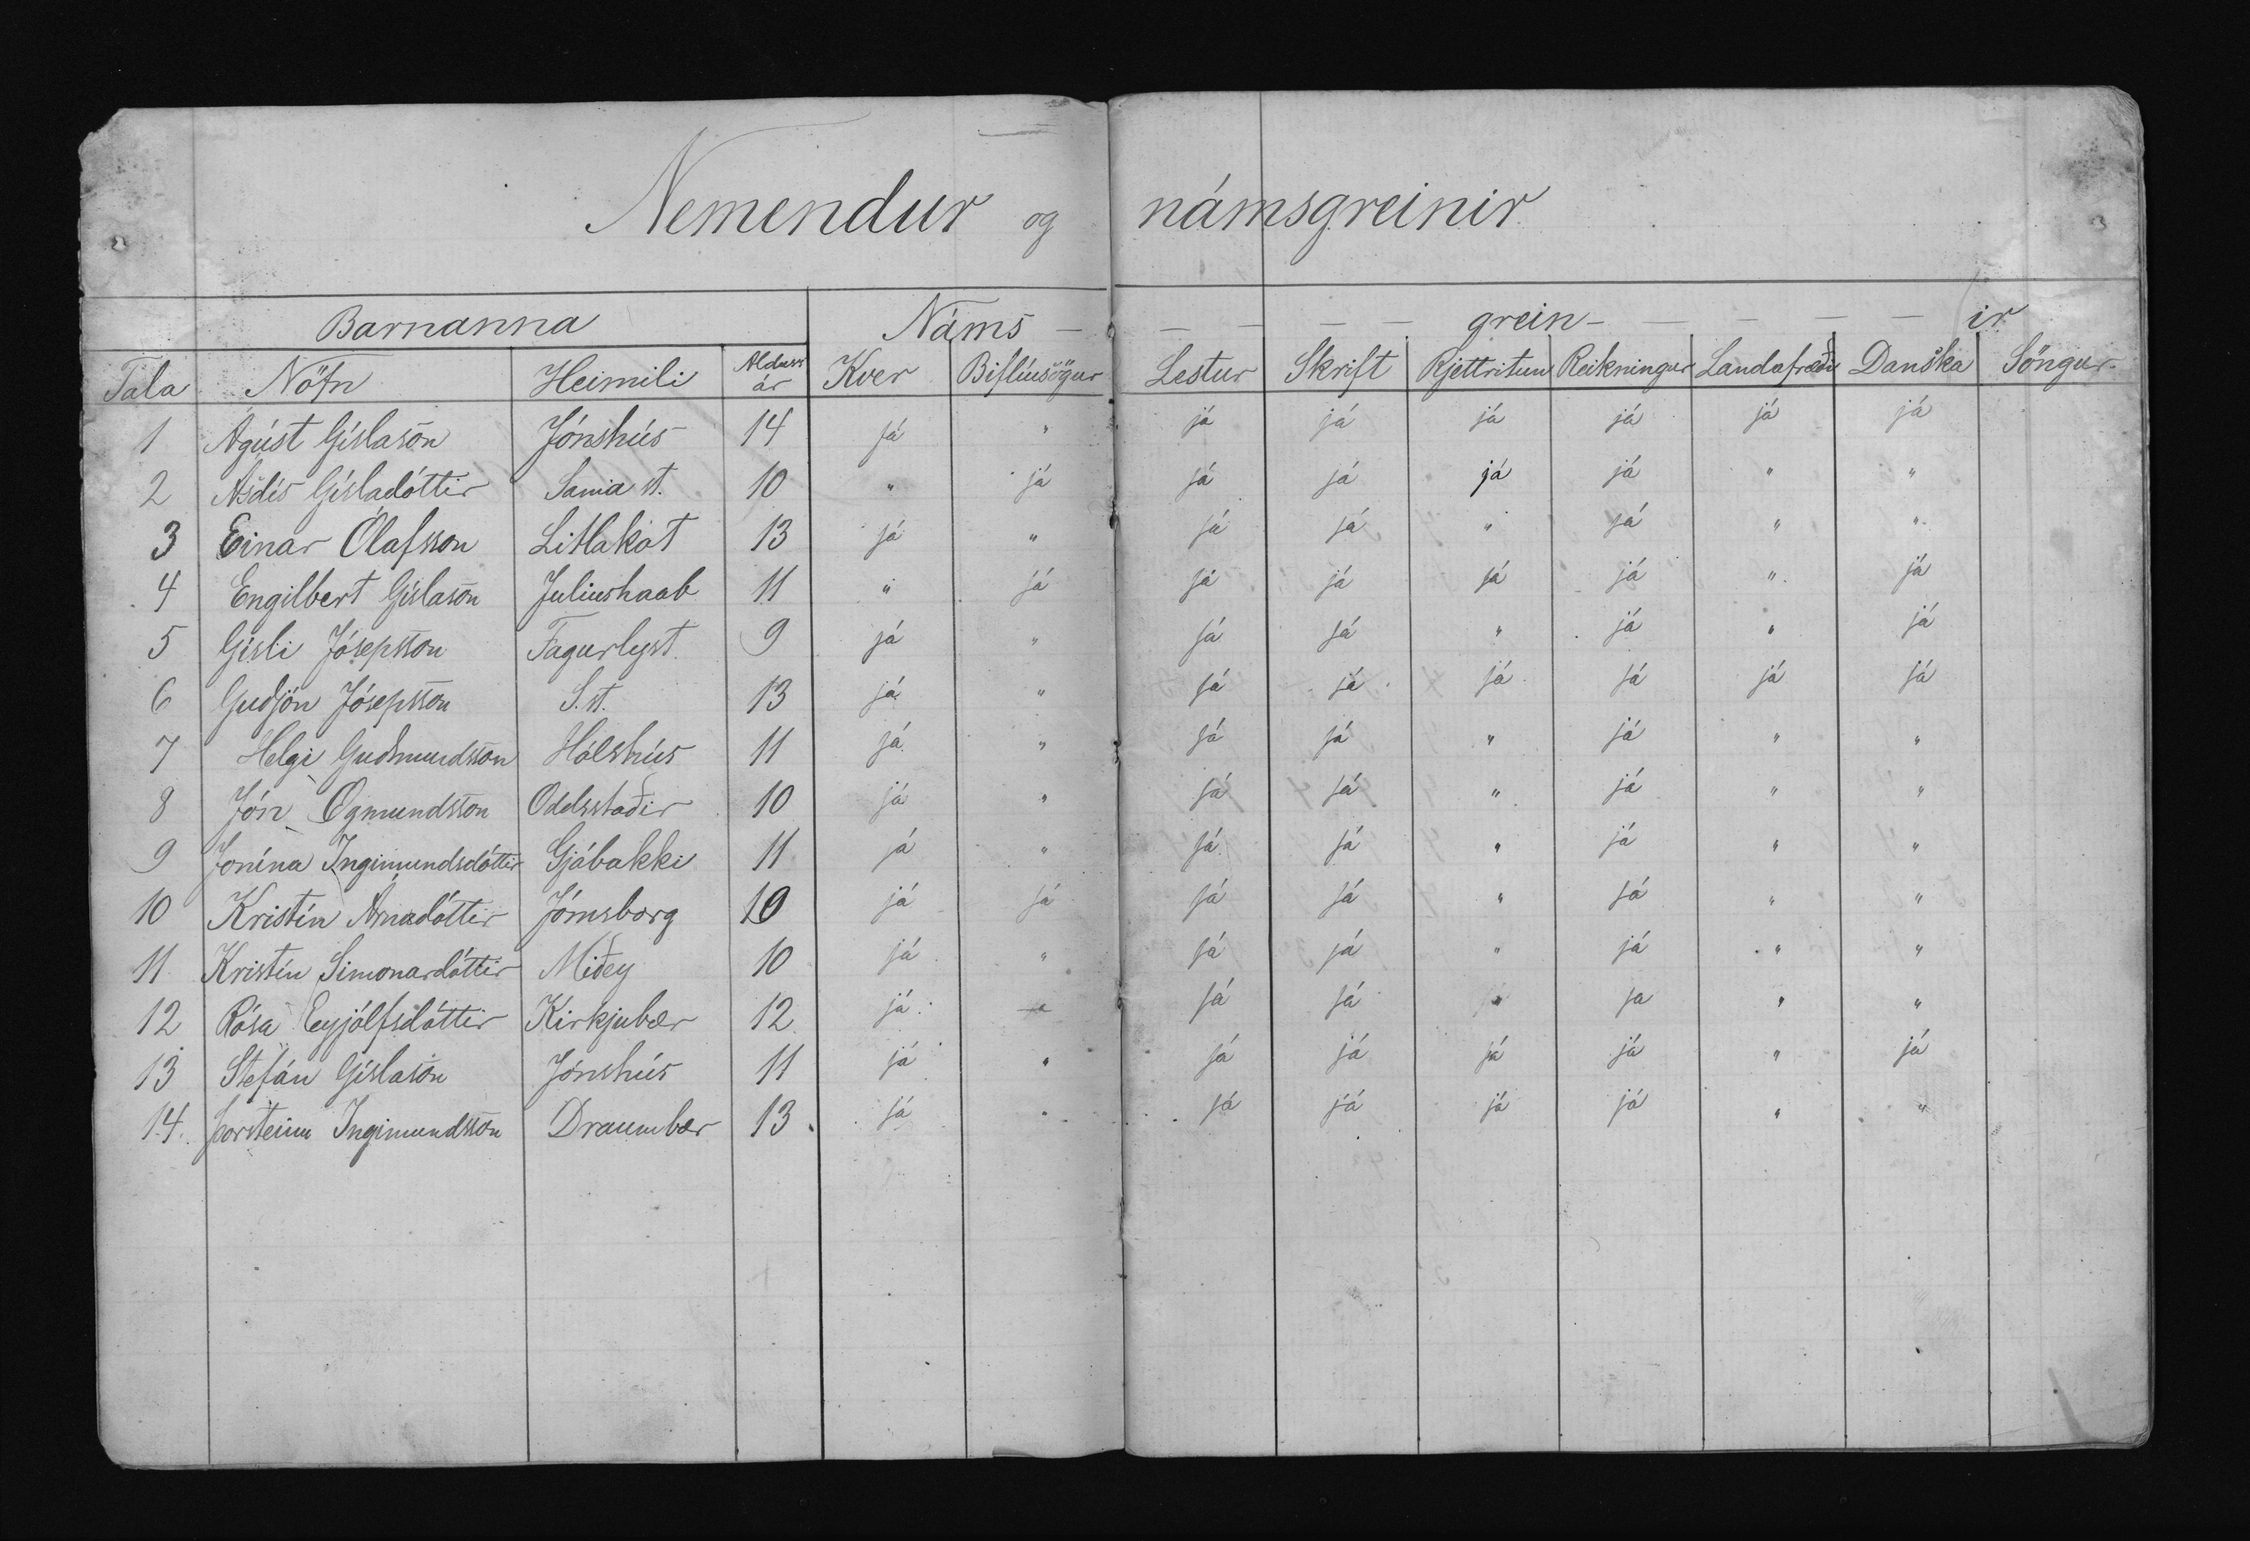 Nemendur og námsgreinir
Barnanna Náms - - - - - grein - - - - - ir
Tala Nöfn Heimili Aldurs ár Kver Biflíusögur Lestur Skrift Rjettritun Reikningur Landafræði Danska Söngur
1 Agúst Gíslason Jónshús 14 já " já já já já já já
2 Asdís Gísladóttir Sama st. 10 " já já já já já " "
3 Einar Ólafsson Litlakot 13 já " já já " já " "
4 Engilbert Gíslason Juliushaab 11 " já já já já já " já
5 Gísli Jósepsson Fagurlyst 9 já " já já " já " já
6 Guðjón Jósepsson S. st. 13 já " já já já já já já
7 Helgi Guðmundsson Hólshús 11 já " já já " já " "
8 Jón Ögmundsson Oddsstaðir 10 já " já já " já " "
9 Jonína Ingimundsdóttir Gjábakki 11 já " já já " já " "
10 Kristín Árnadóttir Jómsborg 10 já já já já " já " "
11 Kristín Simonardóttir Miðey 10 já " já já " já " "
12 Rósa Eyjólfsdóttir Kirkjubær 12 já " já já " ja " "
13 Stefán Gíslason Jónshús 11 já " já já já já " já
14. Þorsteinn Ingimundsson Draumbær 13. já " já já já já " "